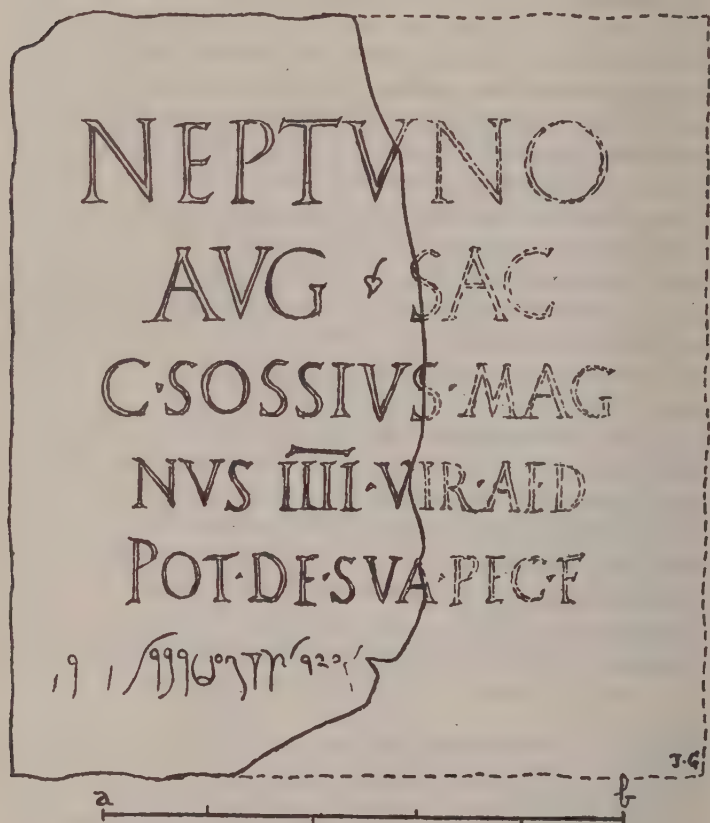 NEPTVNO
AVG SAC
C·SOSSIVS·MAG
NVS IIII·VIR·AED
POT·DE·SVA·PEC·F
J.G
a b